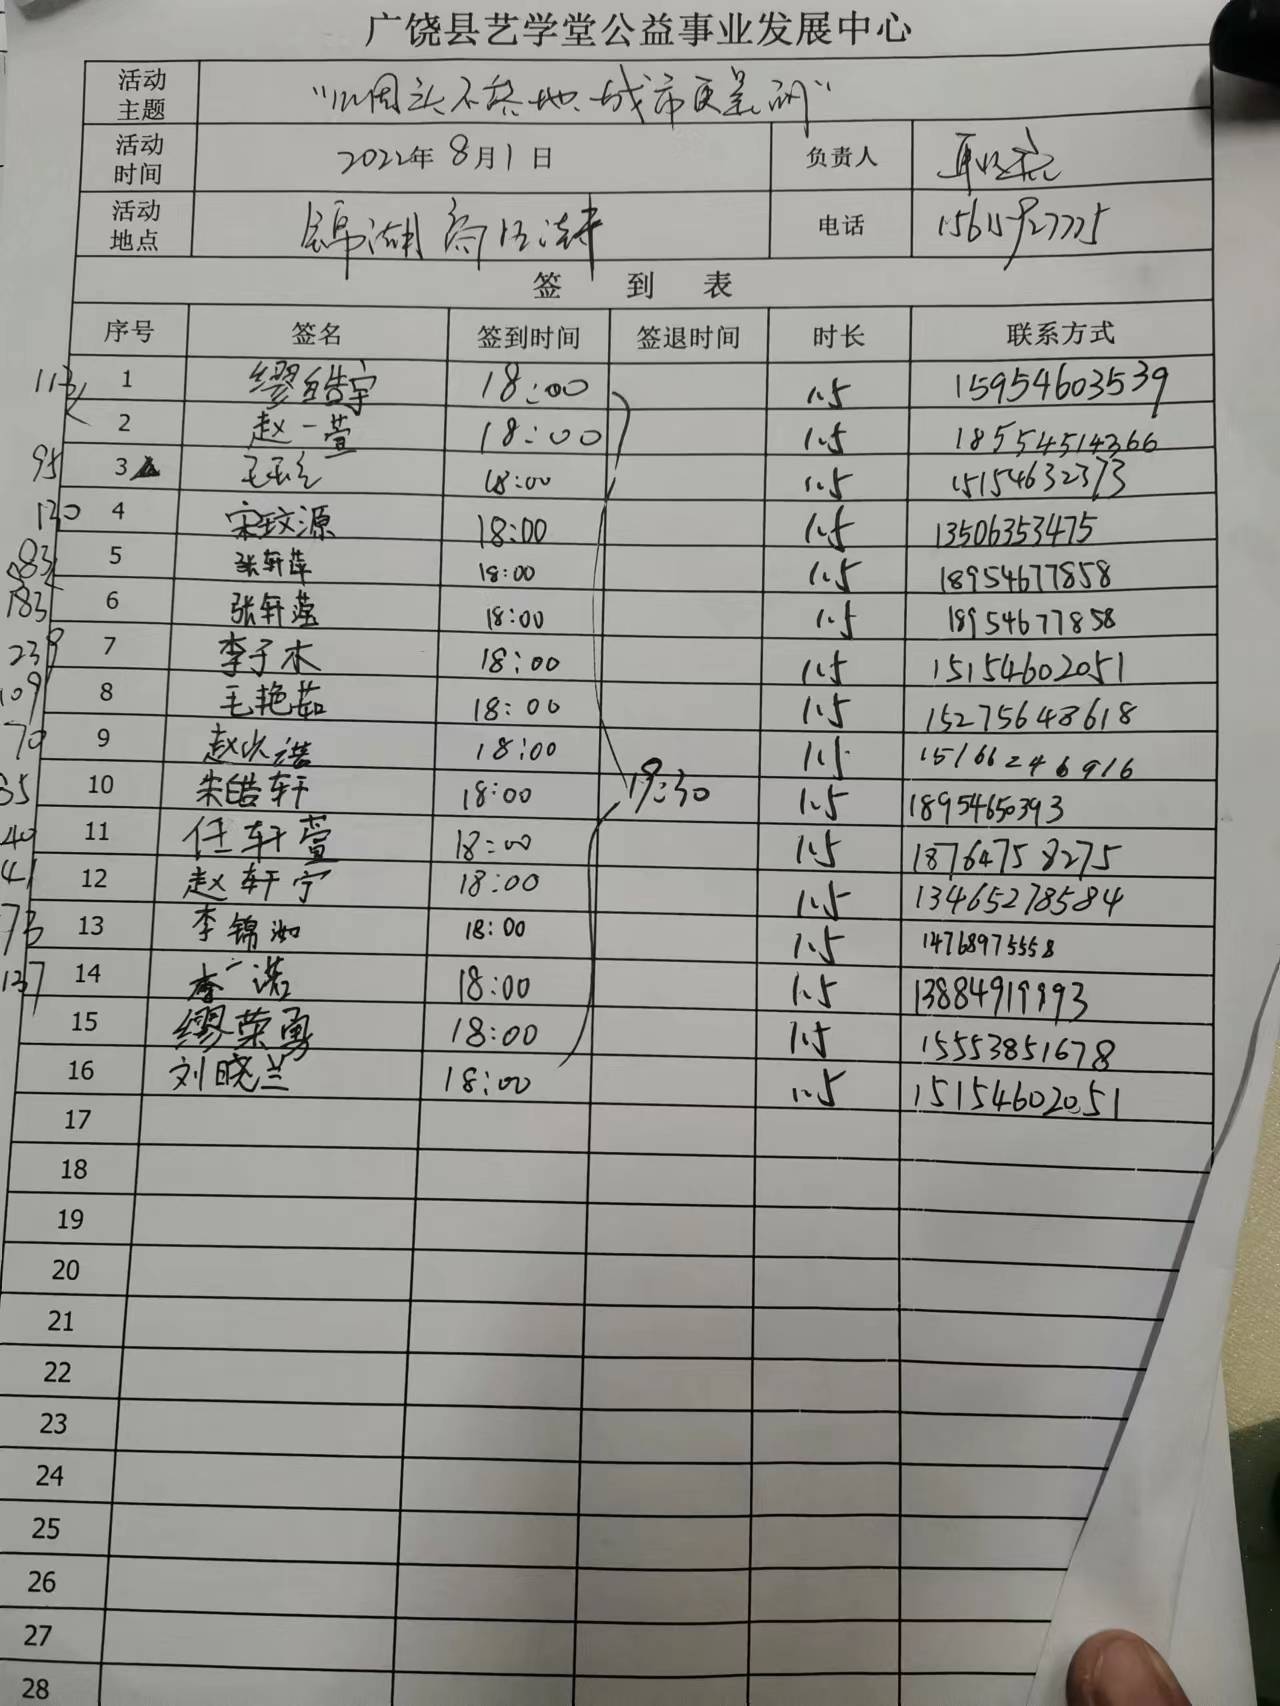 广饶县艺学堂公益事业发展中心
活动主题 "烟头不落地、城市更美丽"
活动时间 2022年8月1日 负责人
活动地点 锦湖 电话 15615927775
签 到 表
序号 签名 签到时间 签退时间 时长 联系方式
113 1 缪皓宇 18:00 1.5 15954603539
2 赵一萱 18:00 1.5 18554514366
95 3 18:00 1.5 15154632373
130 4 宋玟源 18:00 1.5 13506353475
183 5 张轩萍 18:00 1.5 18954677858
183 6 张轩莹 18:00 1.5 18954677858
239 7 李子木 18:00 1.5 15154602051
109 8 毛艳茹 18:00 1.5 15275648618
70 9 赵以诺 18:00 1.5 15166246916
35 10 朱皓轩 18:00 19:30 1.5 18954650393
40 11 任轩萱 18:00 1.5 18764758275
41 12 赵轩宁 18:00 1.5 13465278584
73 13 李锦汝 18:00 1.5 14768975558
137 14 李广诺 18:00 1.5 13884919993
15 缪荣勇 18:00 1.5 15553851678
16 刘晓兰 18:00 1.5 15154602051
17
18
19
20
21
22
23
24
25
26
27
28